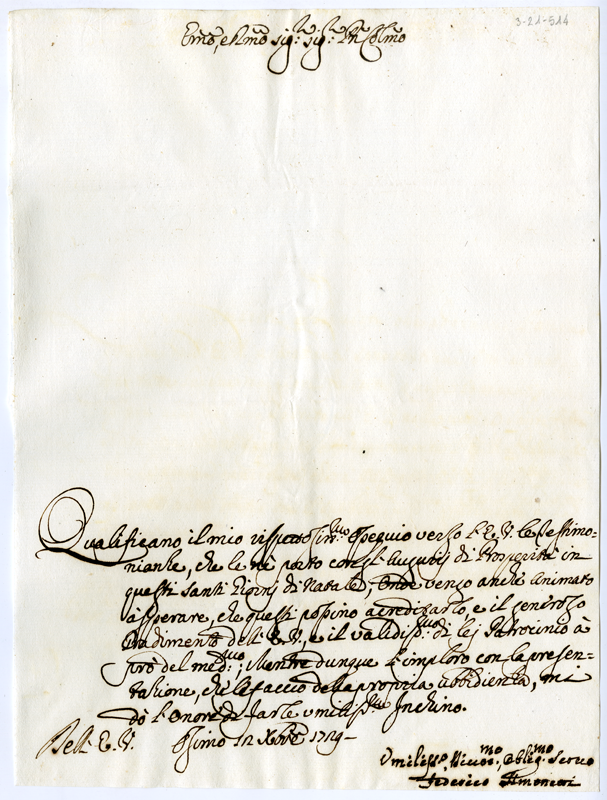 3-21-514
Emo, e Rmo Sig.r Sig.r Pn Colmo
Qualificano il mio rispettosissmo ossequio verso l'E. V. le testimo-
nianze, che le ne porto con gl'Augurij di Prosperità in
questi Santi Giorni di Natale, Onde vengo anche animato
à sperare, che questi possino accreditarlo, e il generoso
gradimento dell'E. V., e il validiss.mo di lej Patrocinio à
prò del medmo; Mentre dunque l'imploro con la presen-
tazione, che le faccio della propria obbidienza, mi
dò l'Onore di farle umilissmo Inchino.
Dell'E. V. Osimo 12 Xbre 1729
Umiliss.o, Divmo, Oblig.mo Servo
Federico